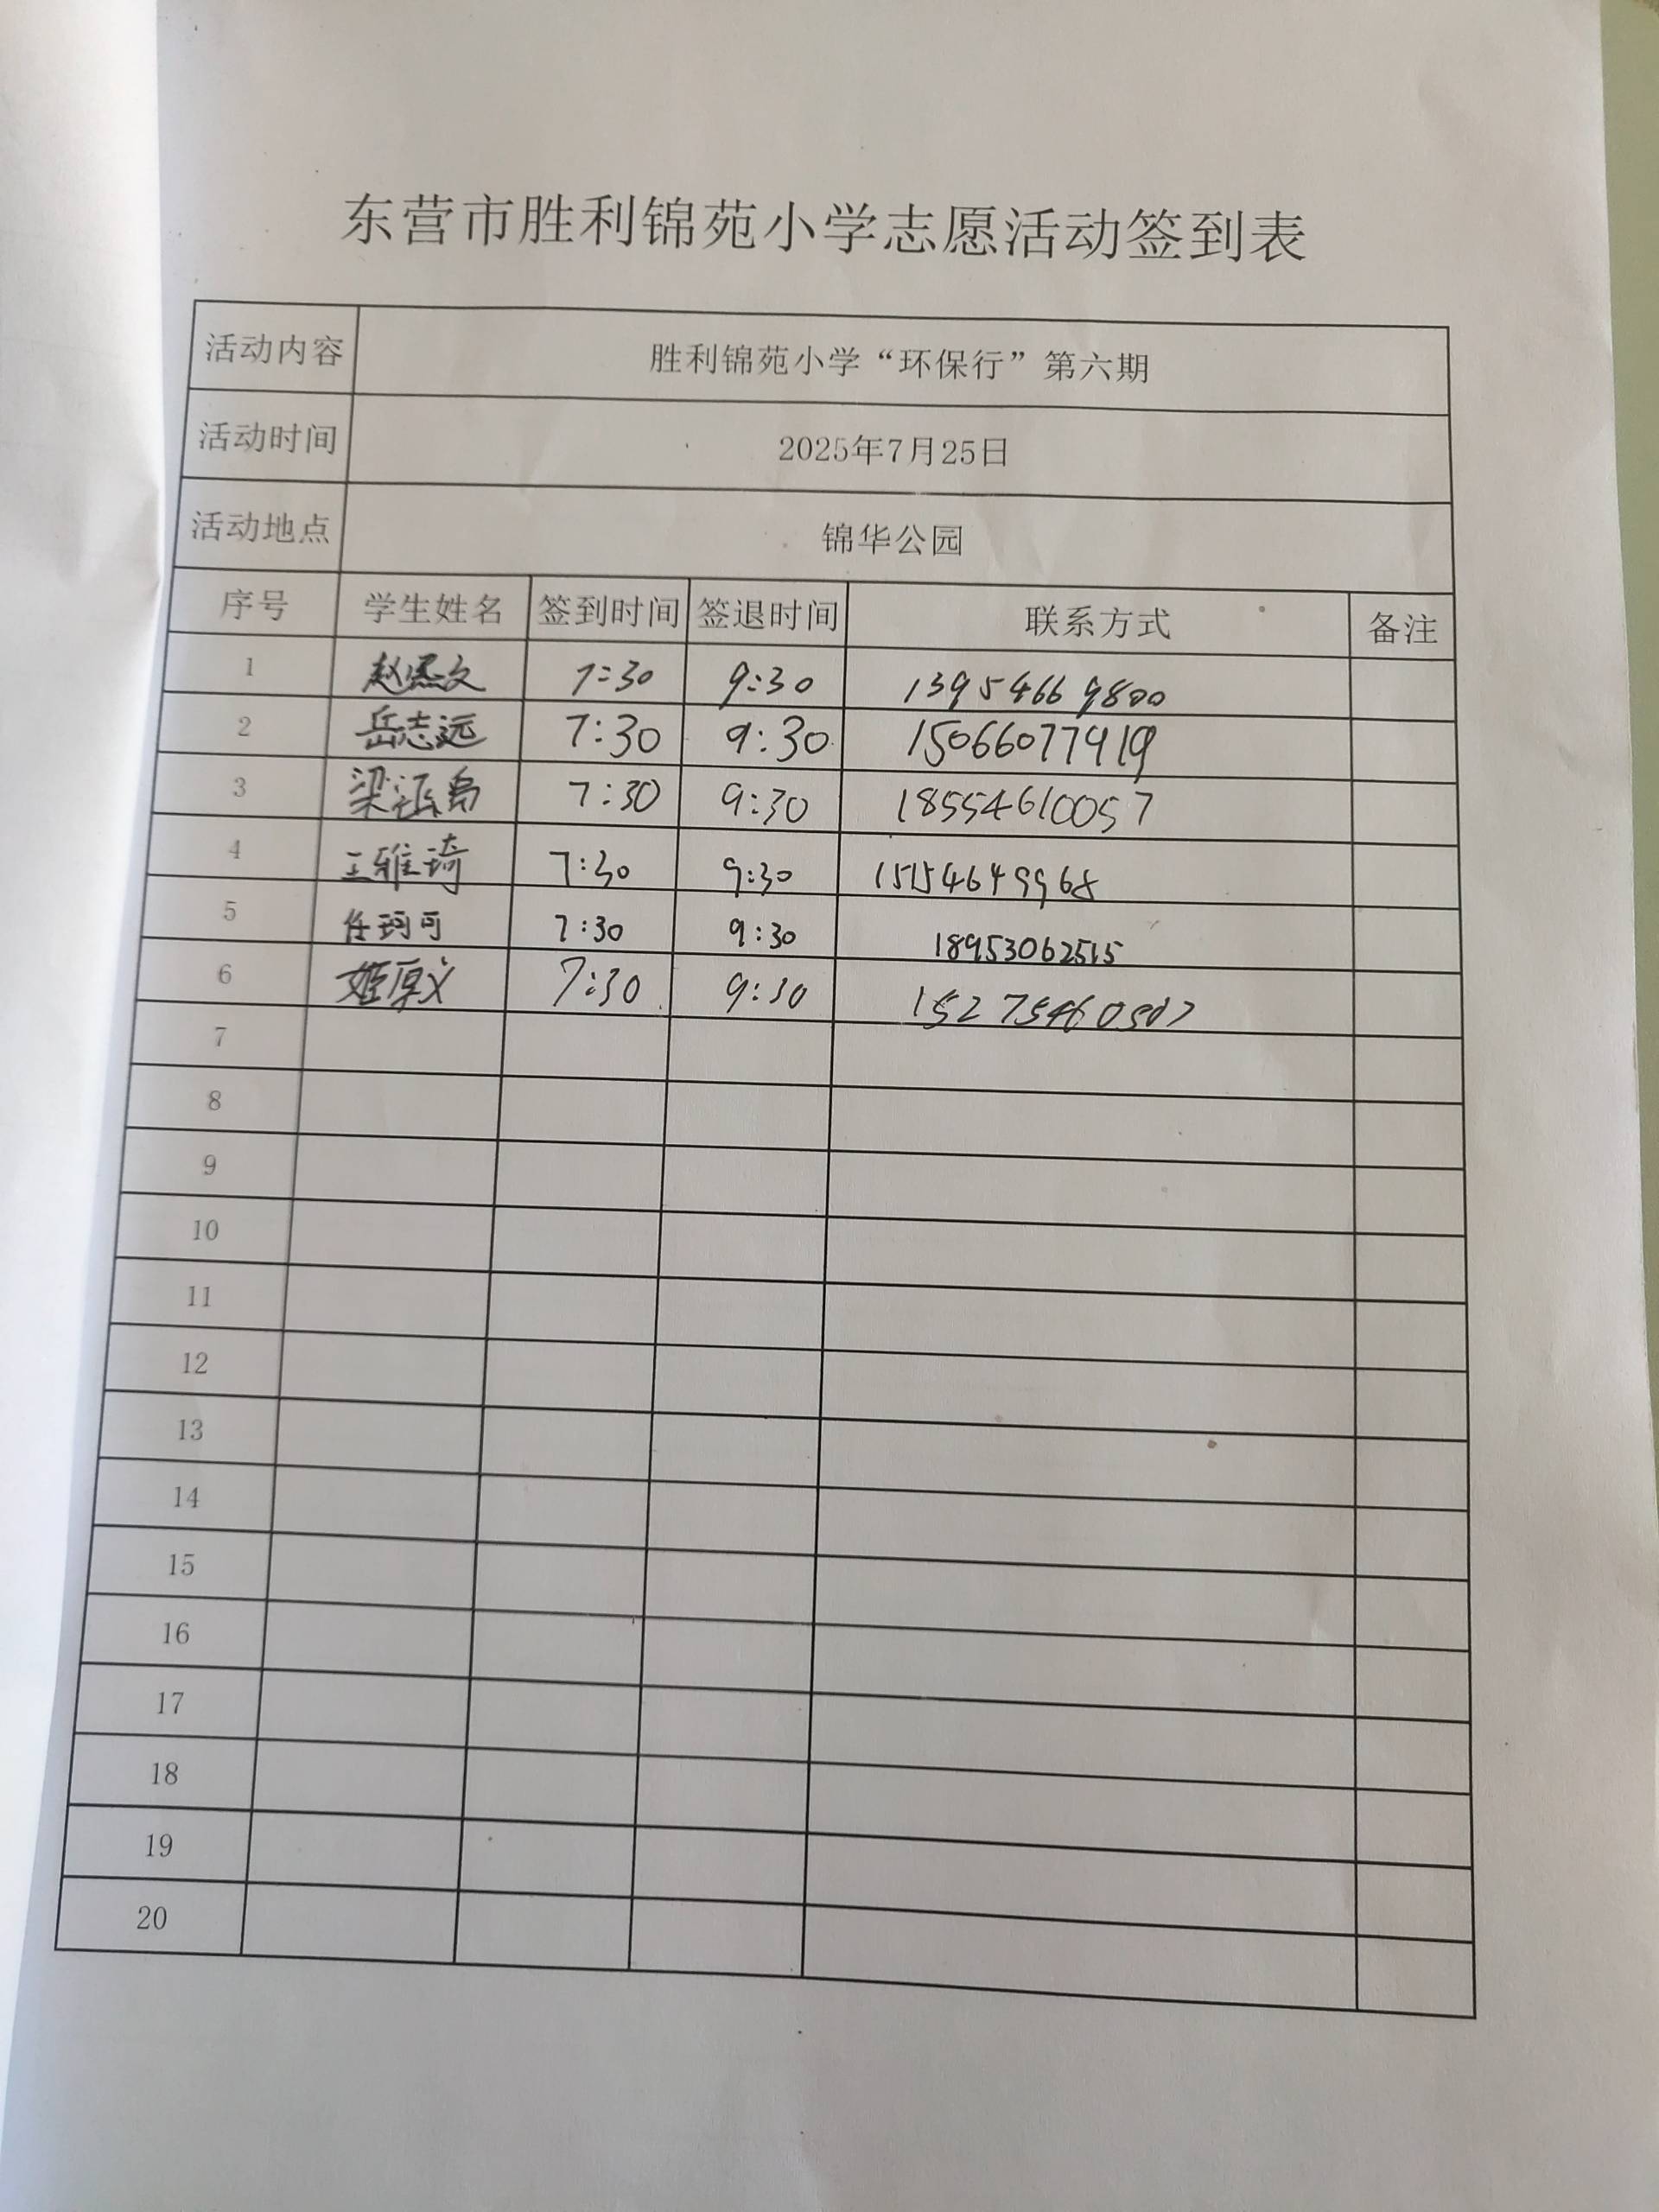 东营市胜利锦苑小学志愿活动签到表
活动内容 胜利锦苑小学“环保行”第六期
活动时间 2025年7月25日
活动地点 锦华公园
序号 学生姓名 签到时间 签退时间 联系方式 备注
1 赵熙文 7:30 9:30 13954669800
2 岳志远 7:30 9:30 15066077919
3 7:30 9:30 18554610057
4 王雅琦 7:30 9:30 15154649968
5 任珂可 7:30 9:30 18953062515
6 7:30 9:30
7
8
9
10
11
12
13
14
15
16
17
18
19
20